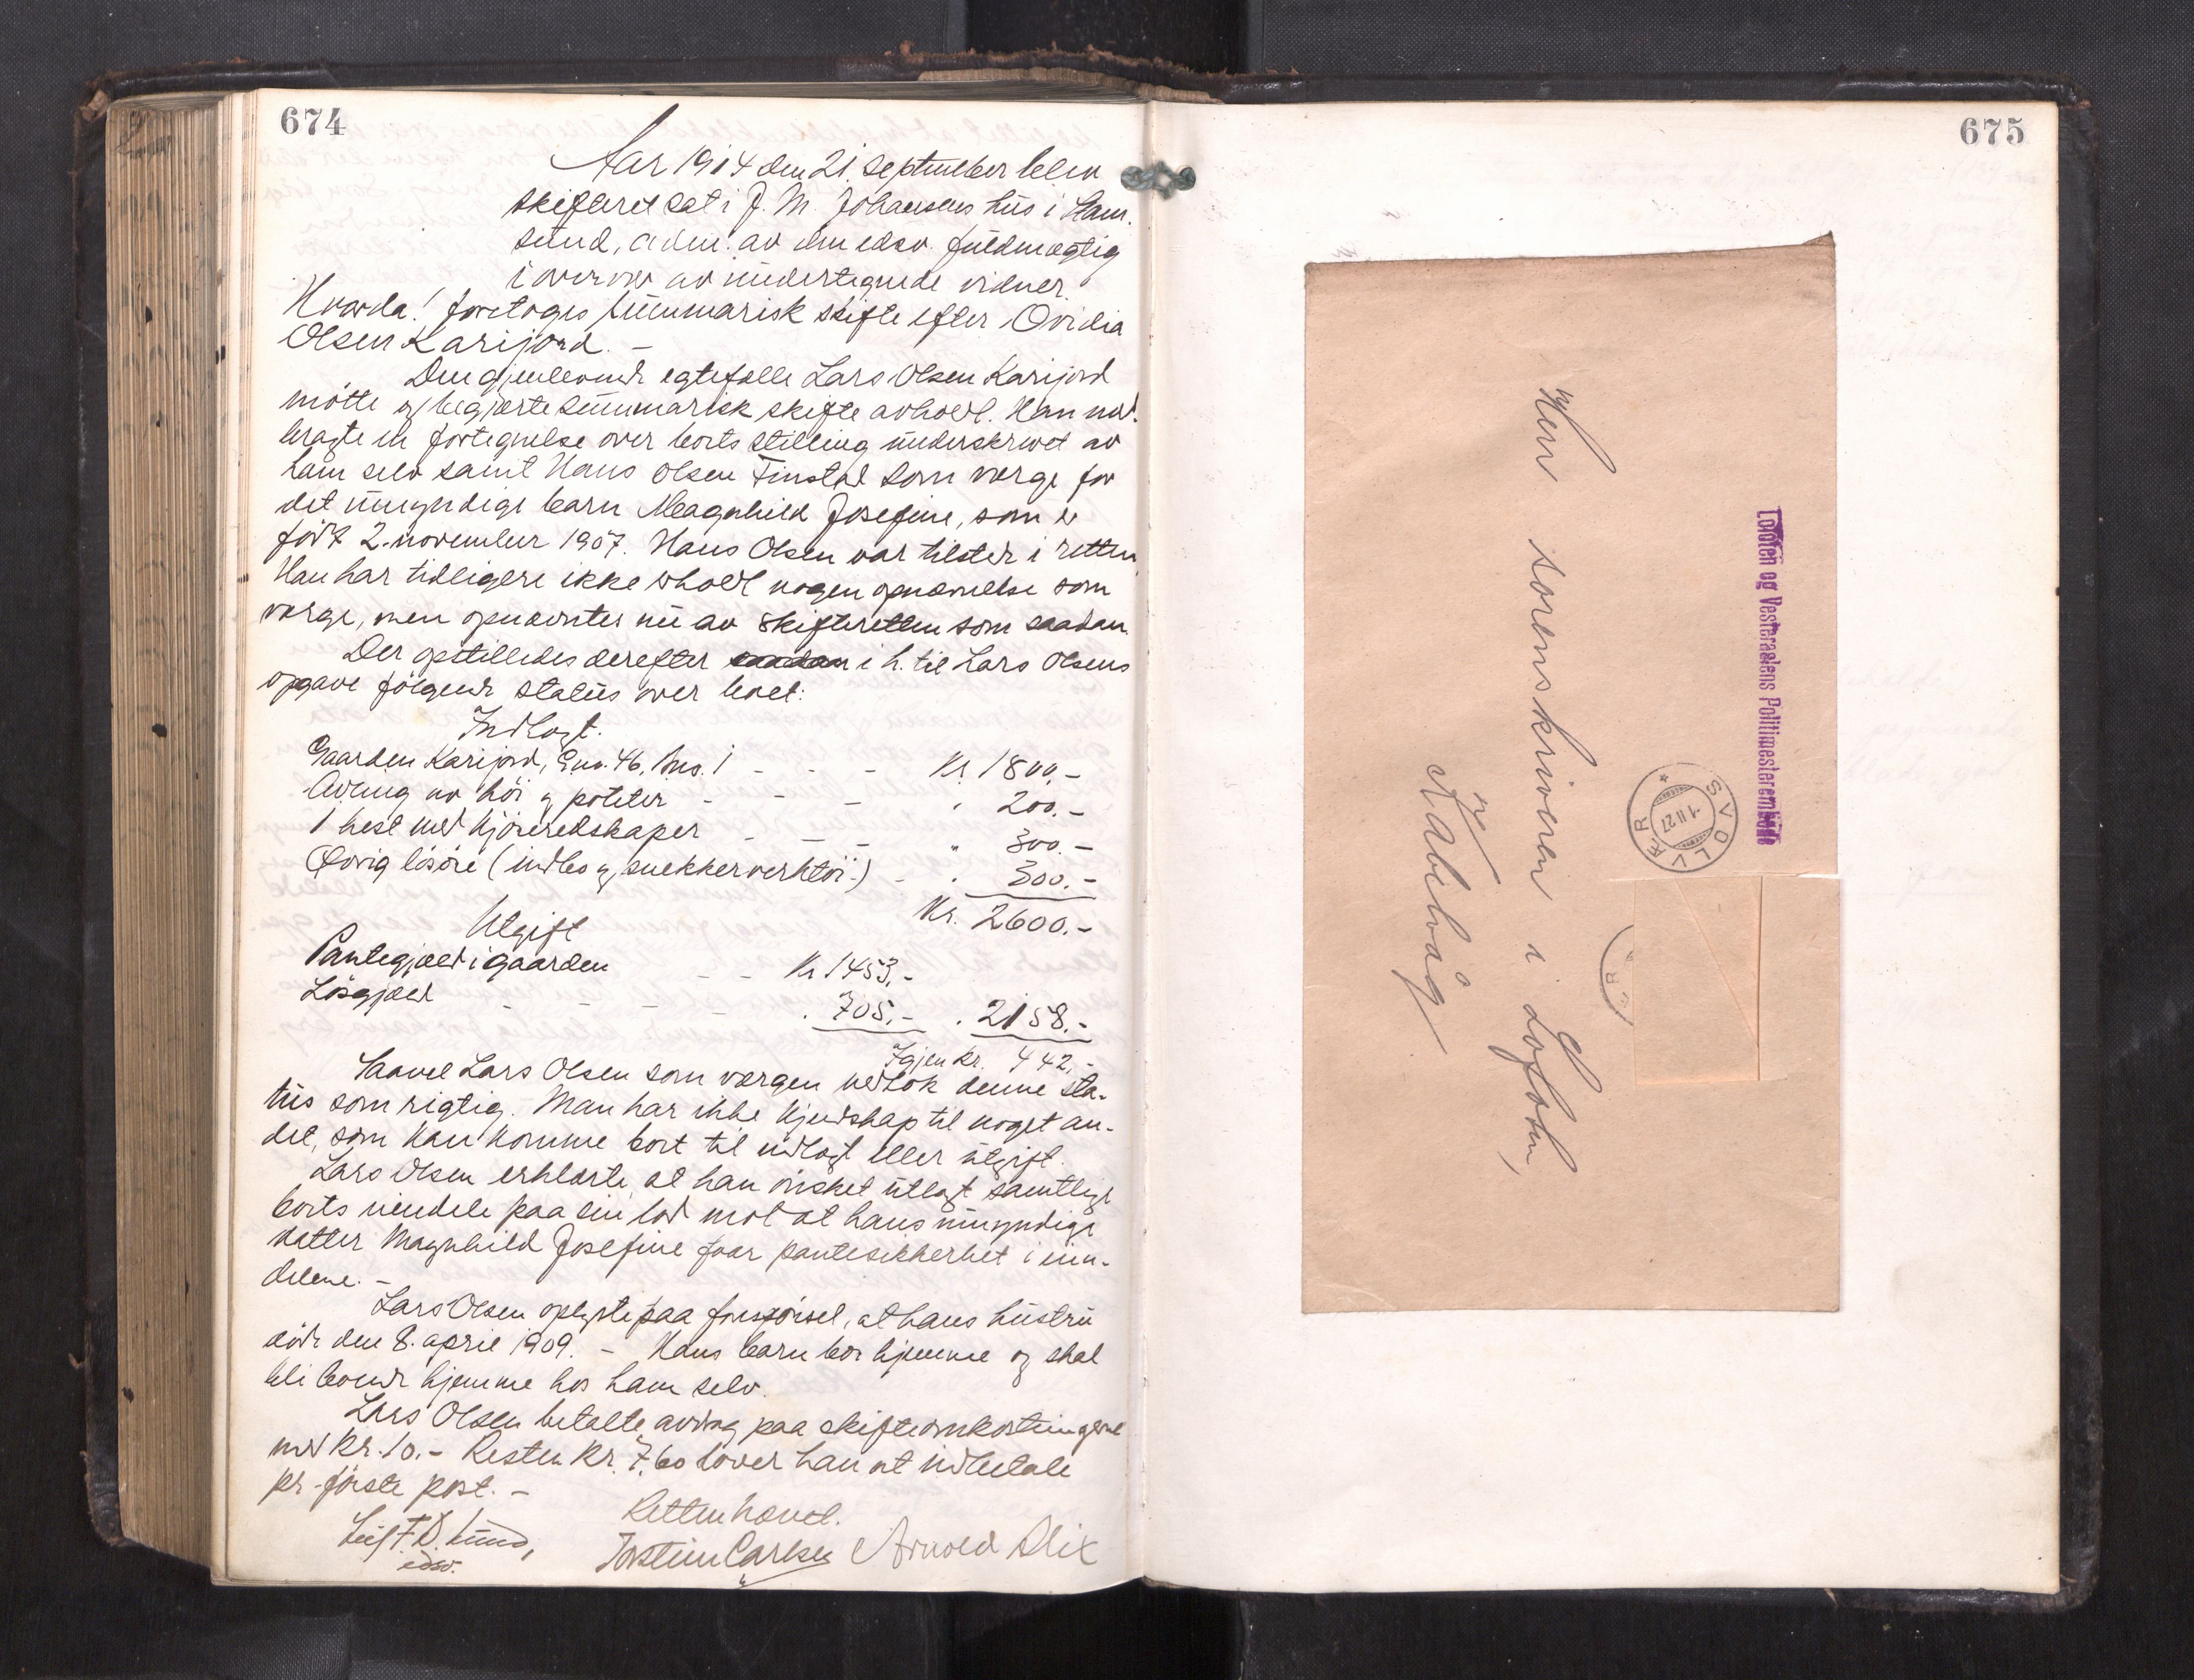 674
Aar 1914 den 21. september blev
skifteret sat i J. M. Johansens hus i Ham-
sund, adm. av den edsv. fuldmægtig
i overvær av undertegnede vidner.
Hvorda! foretoges summarisk skifte efter Ovidia
Olsen Karijord. -
Den gjenlevende egtefælle Lars Olsen Karijord
møtte og begjærte summarisk skifte avholdt. Han med-
bragte en fortegnelse over boets stilling underskrevet av
ham selv samt Hans Olsen Finstad som verge for
det umyndige barn Magnhild Josefine, som er
født 2. november 1907. Hans Olsen var tilstede i retten
Han har tidligere ikke erholdt nogen opnævnelse som
verge, men opnævntes nu av skifteretten som saadan.
Der opstilledes derefter saadan i h. til Lars Olsens
opgave følgende status over boet:
Indtægt.
Gaarden Karijord, Gno. 46, Bno. 1 - - - Kr. 1800.-
Avling av høi og poteter - - - " 200.-
1 hest med kjøreredskaper - - - " 300.-
Øvrig løsøre (indbo og snekkerverktøi) - " 300.-
Kr. 2600.-
Utgift
Pantegjæld i gaarden - - Kr 1453.-
Løsgjæld - - - - " 705.- " 2158.-
Igjen Kr. 442.-
Saavel Lars Olsen som vergen vedtok denne sta-
tus som rigtig. Man har ikke kjendskap til noget an-
det, som kan komme boet til indtægt eller utgift.
Lars Olsen erklærte, at han ønsket utlagt samtlige
boets eiendele paa sin lod mot at hans umyndige
datter Magnhild Josefine faar pantesikkerhet i eien-
delene. -
Lars Olsen oplyste paa forespørsel, at hans hustru
døde den 8. april 1909. - Hans barn bor hjemme og skal
bli boende hjemme hos ham selv.
Lars Olsen betalte avdrag paa skifteomkostningerne
med Kr. 10.- Resten Kr. 7.60 lover han at indbetale
pr. første post. -
Retten hævet.
Leif F. D. Lund,
edsv.
Torstein Carlsen Arnold Dix
675
Lofoten og Vesteraalens Politimesterembede
SVOLVÆR
1 II 27
Herr sorenskriveren i Lofoten,
Kabelvåg